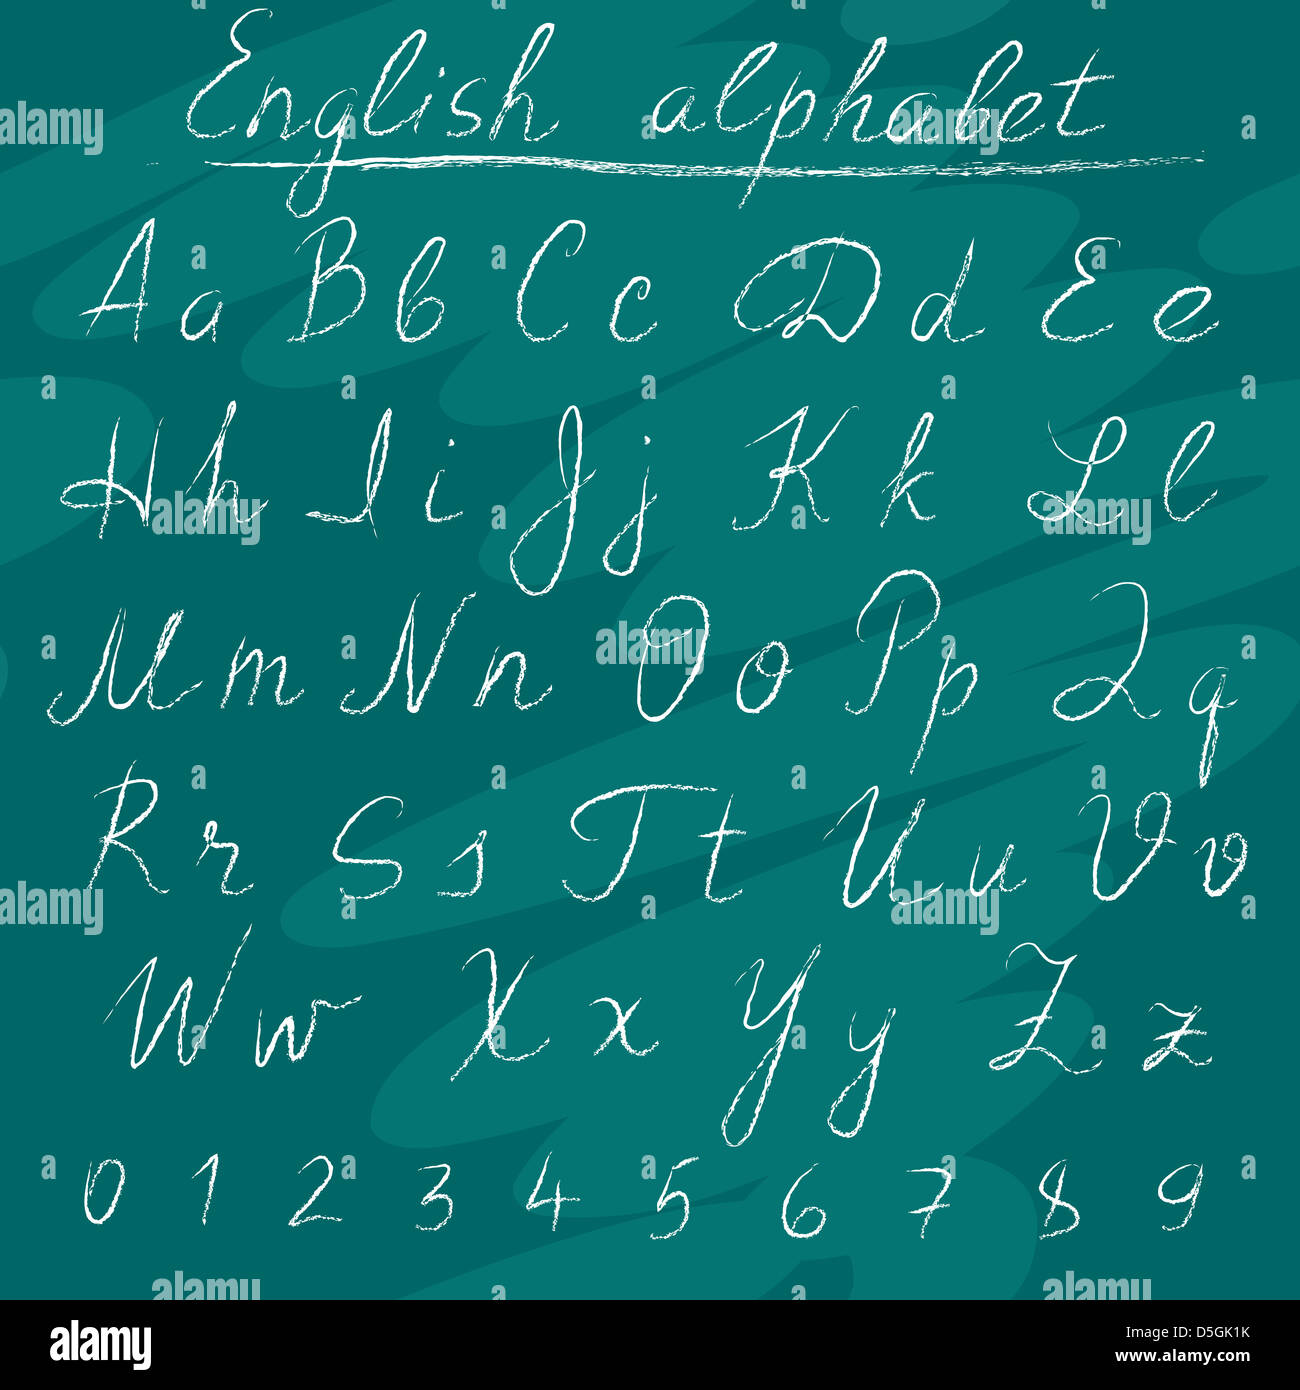 English alphabet
Aa Bb Cc Dd Ee
Hh Ii Jj Kk Ll
Mm Nn Oo Pp Qq
Rr Ss Tt Uu Vv
Ww Xx Yy Zz
0 1 2 3 4 5 6 7 8 9
alamy
Image ID: D5GK1K
www.alamy.com